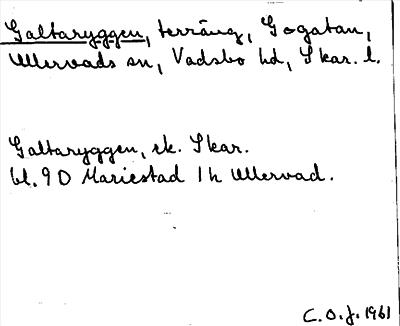 Galtaryggen, terräng, Gogatan,
Ullervads sn, Vadsbo hd, Skar. l.
Galtaryggen, ek. Skar.
bl. 9 D Mariestad 1 h Ullervad.
C. O. J. 1961